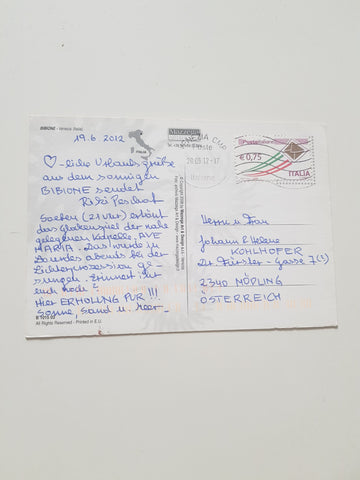 BIBIONE - Venezia (Italia)
19.6 2012
ITALIA
♡-liche Urlaubsgrüße
aus dem sonnigen
BIBIONE sendet
Soeben (21 Uhr) ertönt
das Glockenspiel der nahe
gelegenen Kapelle, AVE
MARIA - Das wurde in
Lourdes abends bei der
Lichterprozession ge-
sungen. Erinnert ihr
euch noch?
Hier ERHOLUNG PUR !!!
Sonne, Sand u. Meer -
B 1015 03
All Rights Reserved - Printed in E.U.
Posteitaliane
€ 0,75
ITALIA
Herrn u. Frau
Johann & Helene
KOHLHOFER
Dr. Fürster - Gasse
2340 MÖDLING
ÖSTERREICH